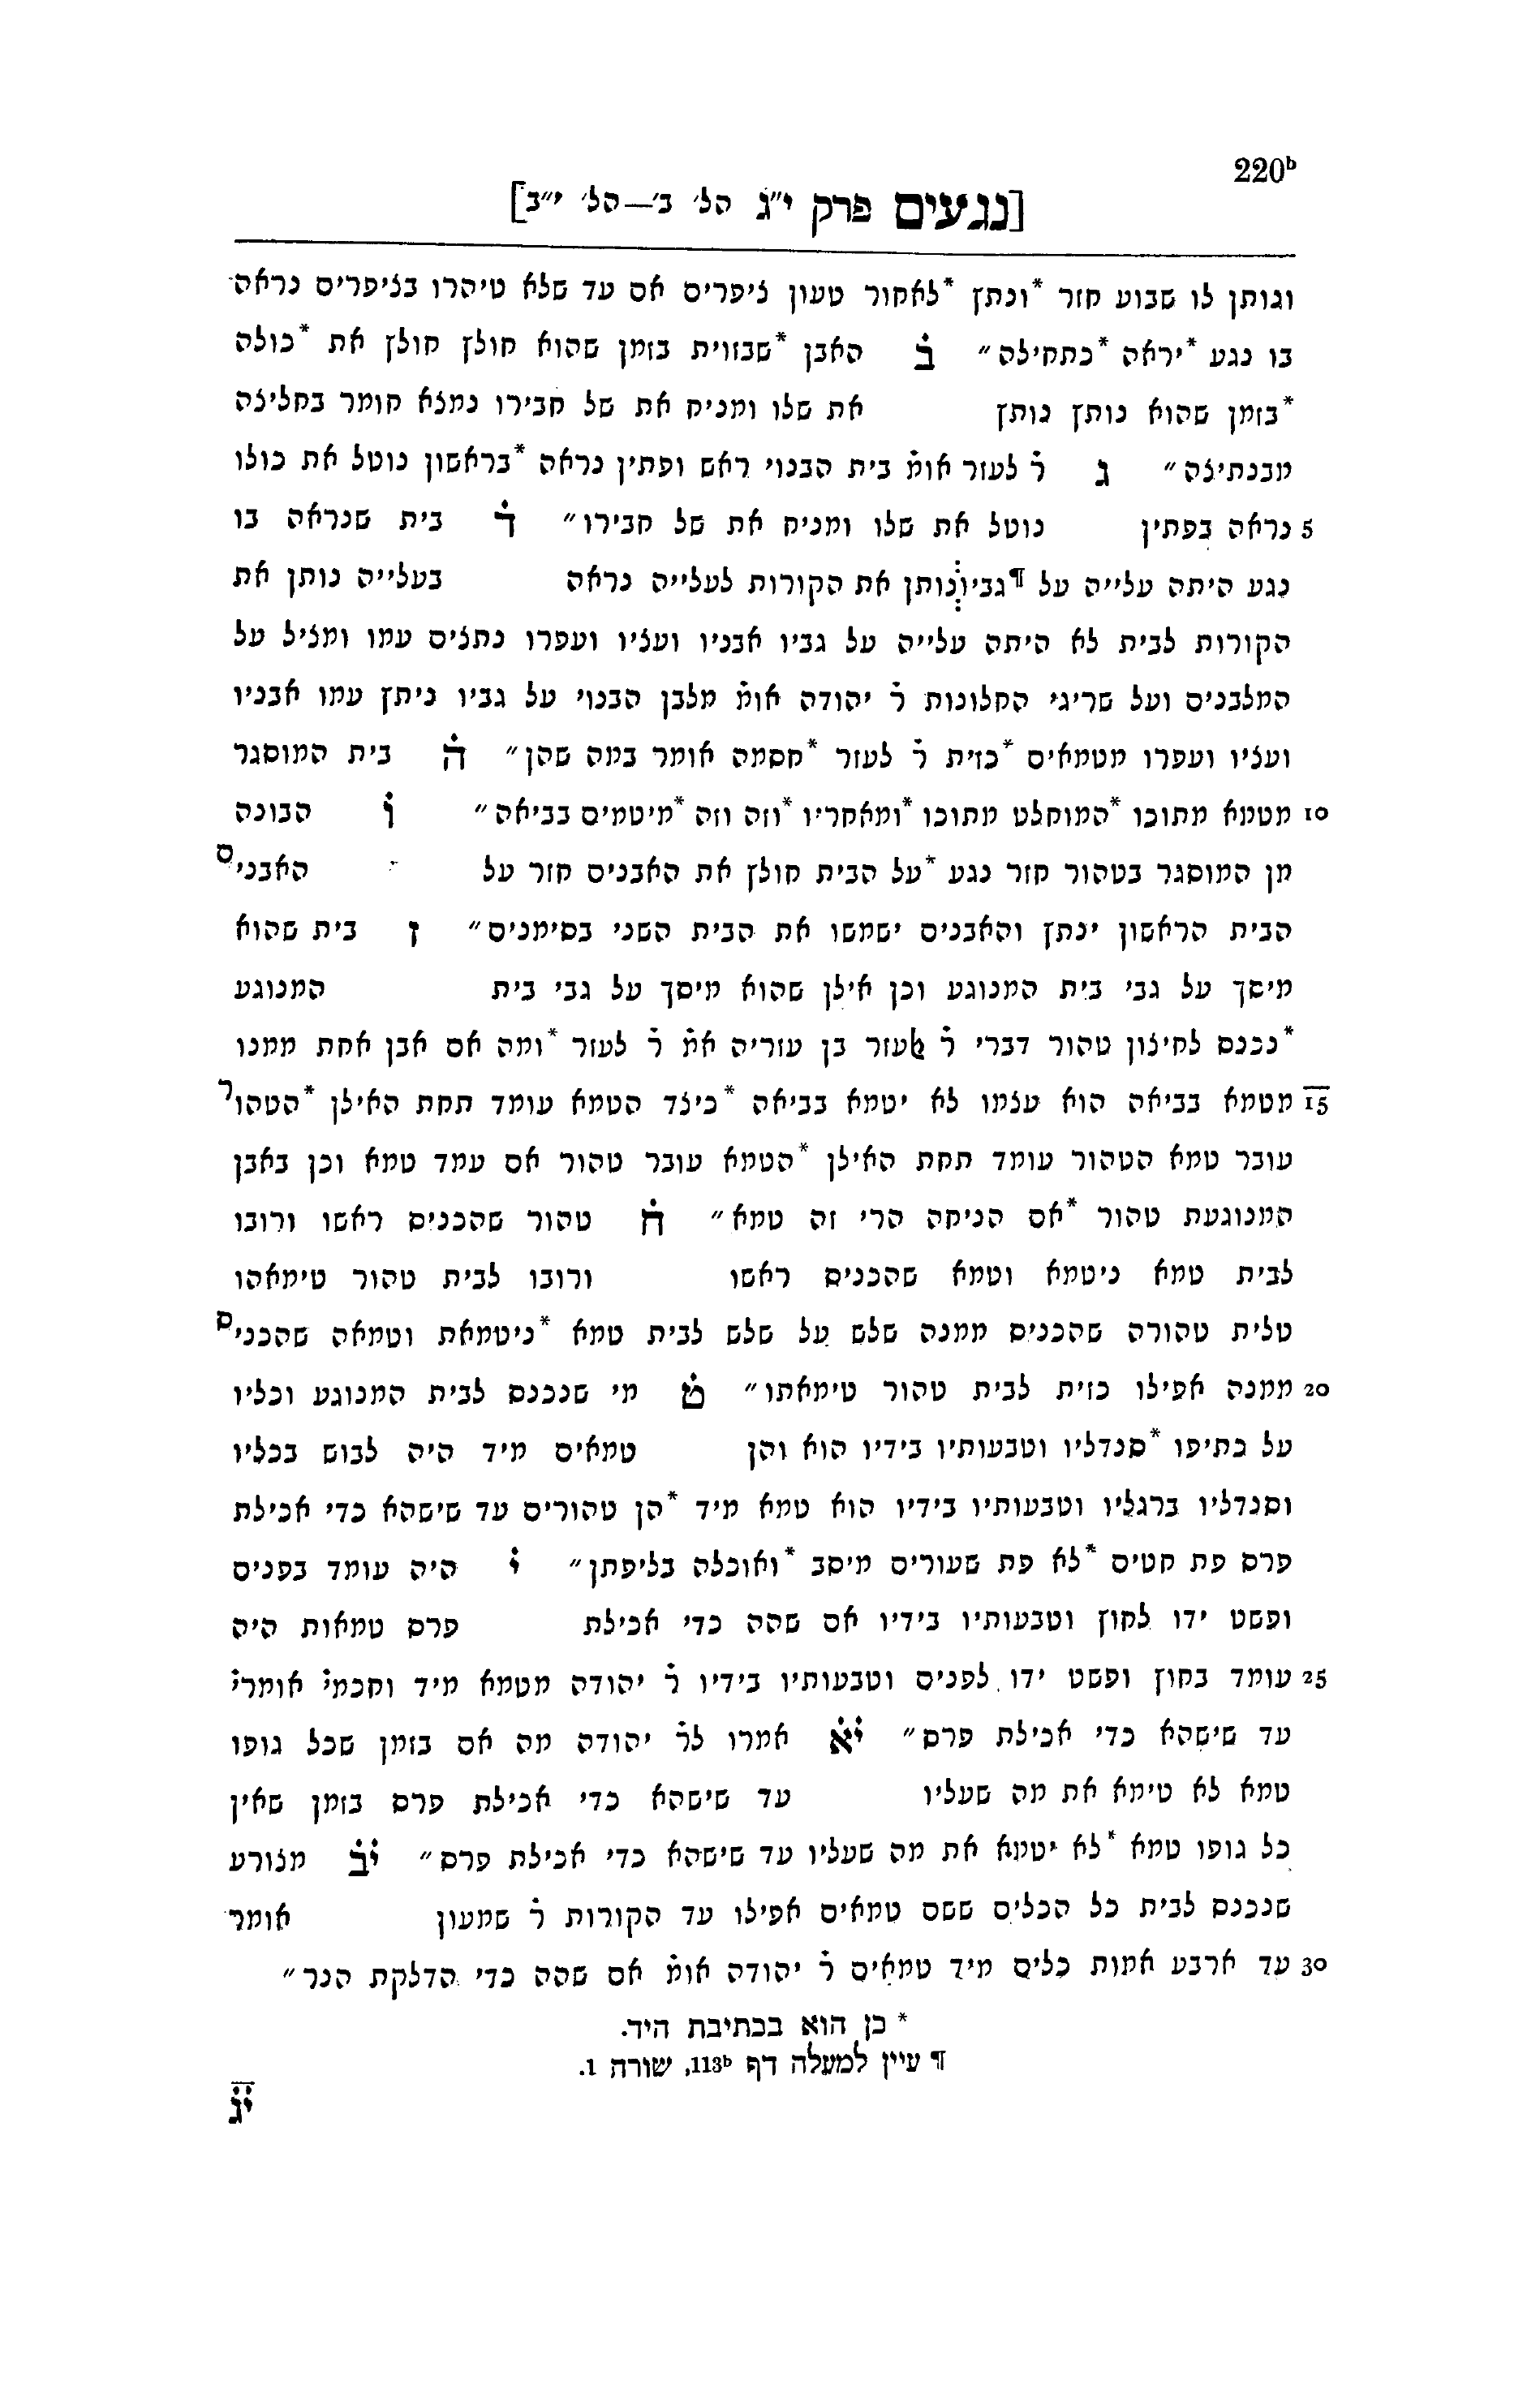 220ᵇ
[נגעים פרק י״ג הל׳ ב׳—הל׳ י״ב]
ונותן לו שבוע חזר *ונתץ *לאחור טעון ציפרים אם עד שלא טיהרו בציפרים נראה
בו נגע *יראה *כתחילה״ בׄ האבן *שבזוית בזמן שהוא חולץ חולץ את *כולה
*בזמן שהוא נותץ נותץ את שלו ומניח את של חבירו נמצא חומר בחליצה
מבנתיצה״ ג רׄ לעזר אומׄ בית הבנוי ראש ופתין נראה *בראשון נוטל את כולו
5 נראה בפתין נוטל את שלו ומניח את של חבירו״ דׄ בית שנראה בו
נגע היתה עלייה על ¶גביו נותן את הקורות לעלייה נראה בעלייה נותן את
הקורות לבית לא היתה עלייה על גביו אבניו ועציו ועפרו נתצים עמו ומציל על
המלבנים ועל שריגי החלונות רׄ יהודה אומׄ מלבן הבנוי על גביו ניתץ עמו אבניו
ועציו ועפרו מטמאים *כזית רׄ לעזר *חסמה אומר במה שהן״ הׄ בית המוסגר
10 מטמא מתוכו *המוחלט מתוכו *ומאחריו *וזה וזה *מיטמים בביאה״ וׄ הבונה
מן המוסגר בטהור חזר נגע *על הבית חולץ את האבנים חזר על האבנים
הבית הראשון ינתץ והאבנים ישמשו את הבית השני בסימנים״ ז בית שהוא
מיסך על גבי בית המנוגע וכן אילן שהוא מיסך על גבי בית המנוגע
*נכנס לחיצון טהור דברי רׄ לעזר בן עזריה אמׄ רׄ לעזר *ומה אם אבן אחת ממנו
15 מטמא בביאה הוא עצמו לא יטמא בביאה *כיצד הטמא עומד תחת האילן *הטהור
עובר טמא הטהור עומד תחת האילן *הטמא עובר טהור אם עמד טמא וכן באבן
המנוגעת טהור *אם הניחה הרי זה טמא״ חׄ טהור שהכנים ראשו ורובו
לבית טמא ניטמא וטמא שהכנים ראשו ורובו לבית טהור טימאהו
טלית טהורה שהכנים ממנה שלש על שלש לבית טמא *ניטמאת וטמאה שהכנים
20 ממנה אפילו כזית לבית טהור טימאתו״ טׄ מי שנכנס לבית המנוגע וכליו
על כתיפו *סנדליו וטבעותיו בידיו הוא והן טמאים מיד היה לבוש בכליו
וסנדליו ברגליו וטבעותיו בידיו הוא טמא מיד *הן טהורים עד שישהא כדי אכילת
פרס פת חטים *לא פת שעורים מיסב *ואוכלה בליפתן״ יׄ היה עומד בפנים
ופשט ידו לחוץ וטבעותיו בידיו אם שהה כדי אכילת פרס טמאות היה
25 עומד בחוץ ופשט ידו לפנים וטבעותיו בידיו רׄ יהודה מטמא מיד וחכמיׄ אומריׄ
עד שישהא כדי אכילת פרס״ יׄאׄ אמרו לרׄ יהודה מה אם בזמן שכל גופו
טמא לא טימא את מה שעליו עד שישהא כדי אכילת פרס בזמן שאין
כל גופו טמא *לא יטמא את מה שעליו עד שישהא כדי אכילת פרס״ יׄבׄ מצורע
שנכנס לבית כל הכלים ששם טמאים אפילו עד הקורות רׄ שמעון אומר
30 עד ארבע אמות כלים מיד טמאים רׄ יהודה אומׄ אם שהה כדי הדלקת הנר״
* כן הוא בכתיבת היד.
¶ עיין למעלה דף 113ᵇ, שורה 1.
יׄגׄ